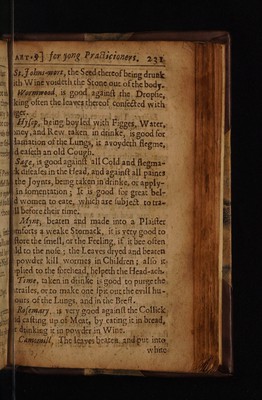 ART. 9] for yong Practicioners. 231
St. Johns-wort, the Seed thereof being drunk
ith Wine voideth the Stone out of the body.
Wormwood, is good against the Dropsie,
king often the leaves thereof confected with
Hysop, being boyled with Figges, Water,
oney, and Rew taken in drinke, is good for
flamation of the Lungs, it avoydeth flegme,
d easeth an old Cough.
Sage, is good against all Cold and flegma-
k diseases in the Head, and against all paines
the Joynts, being taken in drinke, or apply-
in fomentation: It is good for great bel-
d women to eate, which are subject to tra-
ll before their time.
Mynt, beaten and made into a Plaister
mforts a weake Stomack, it is very good to
store the smell, or the Feeling, if it bee often
ld to the nose; the Leaves dryed and beaten
powder kill wormes in Children; also it
plied to the forehead, helpeth the Head-ach.
Time, taken in drinke is good to purge the
trailes, or to make one spit out the evill hu-
ours of the Lungs, and in the Brest.
Rosemary, is very good against the Collick
d casting up of Meat, by eating it in bread,
r drinking it in powder in Wine.
Camomill, The leaves beaten, and put into
white